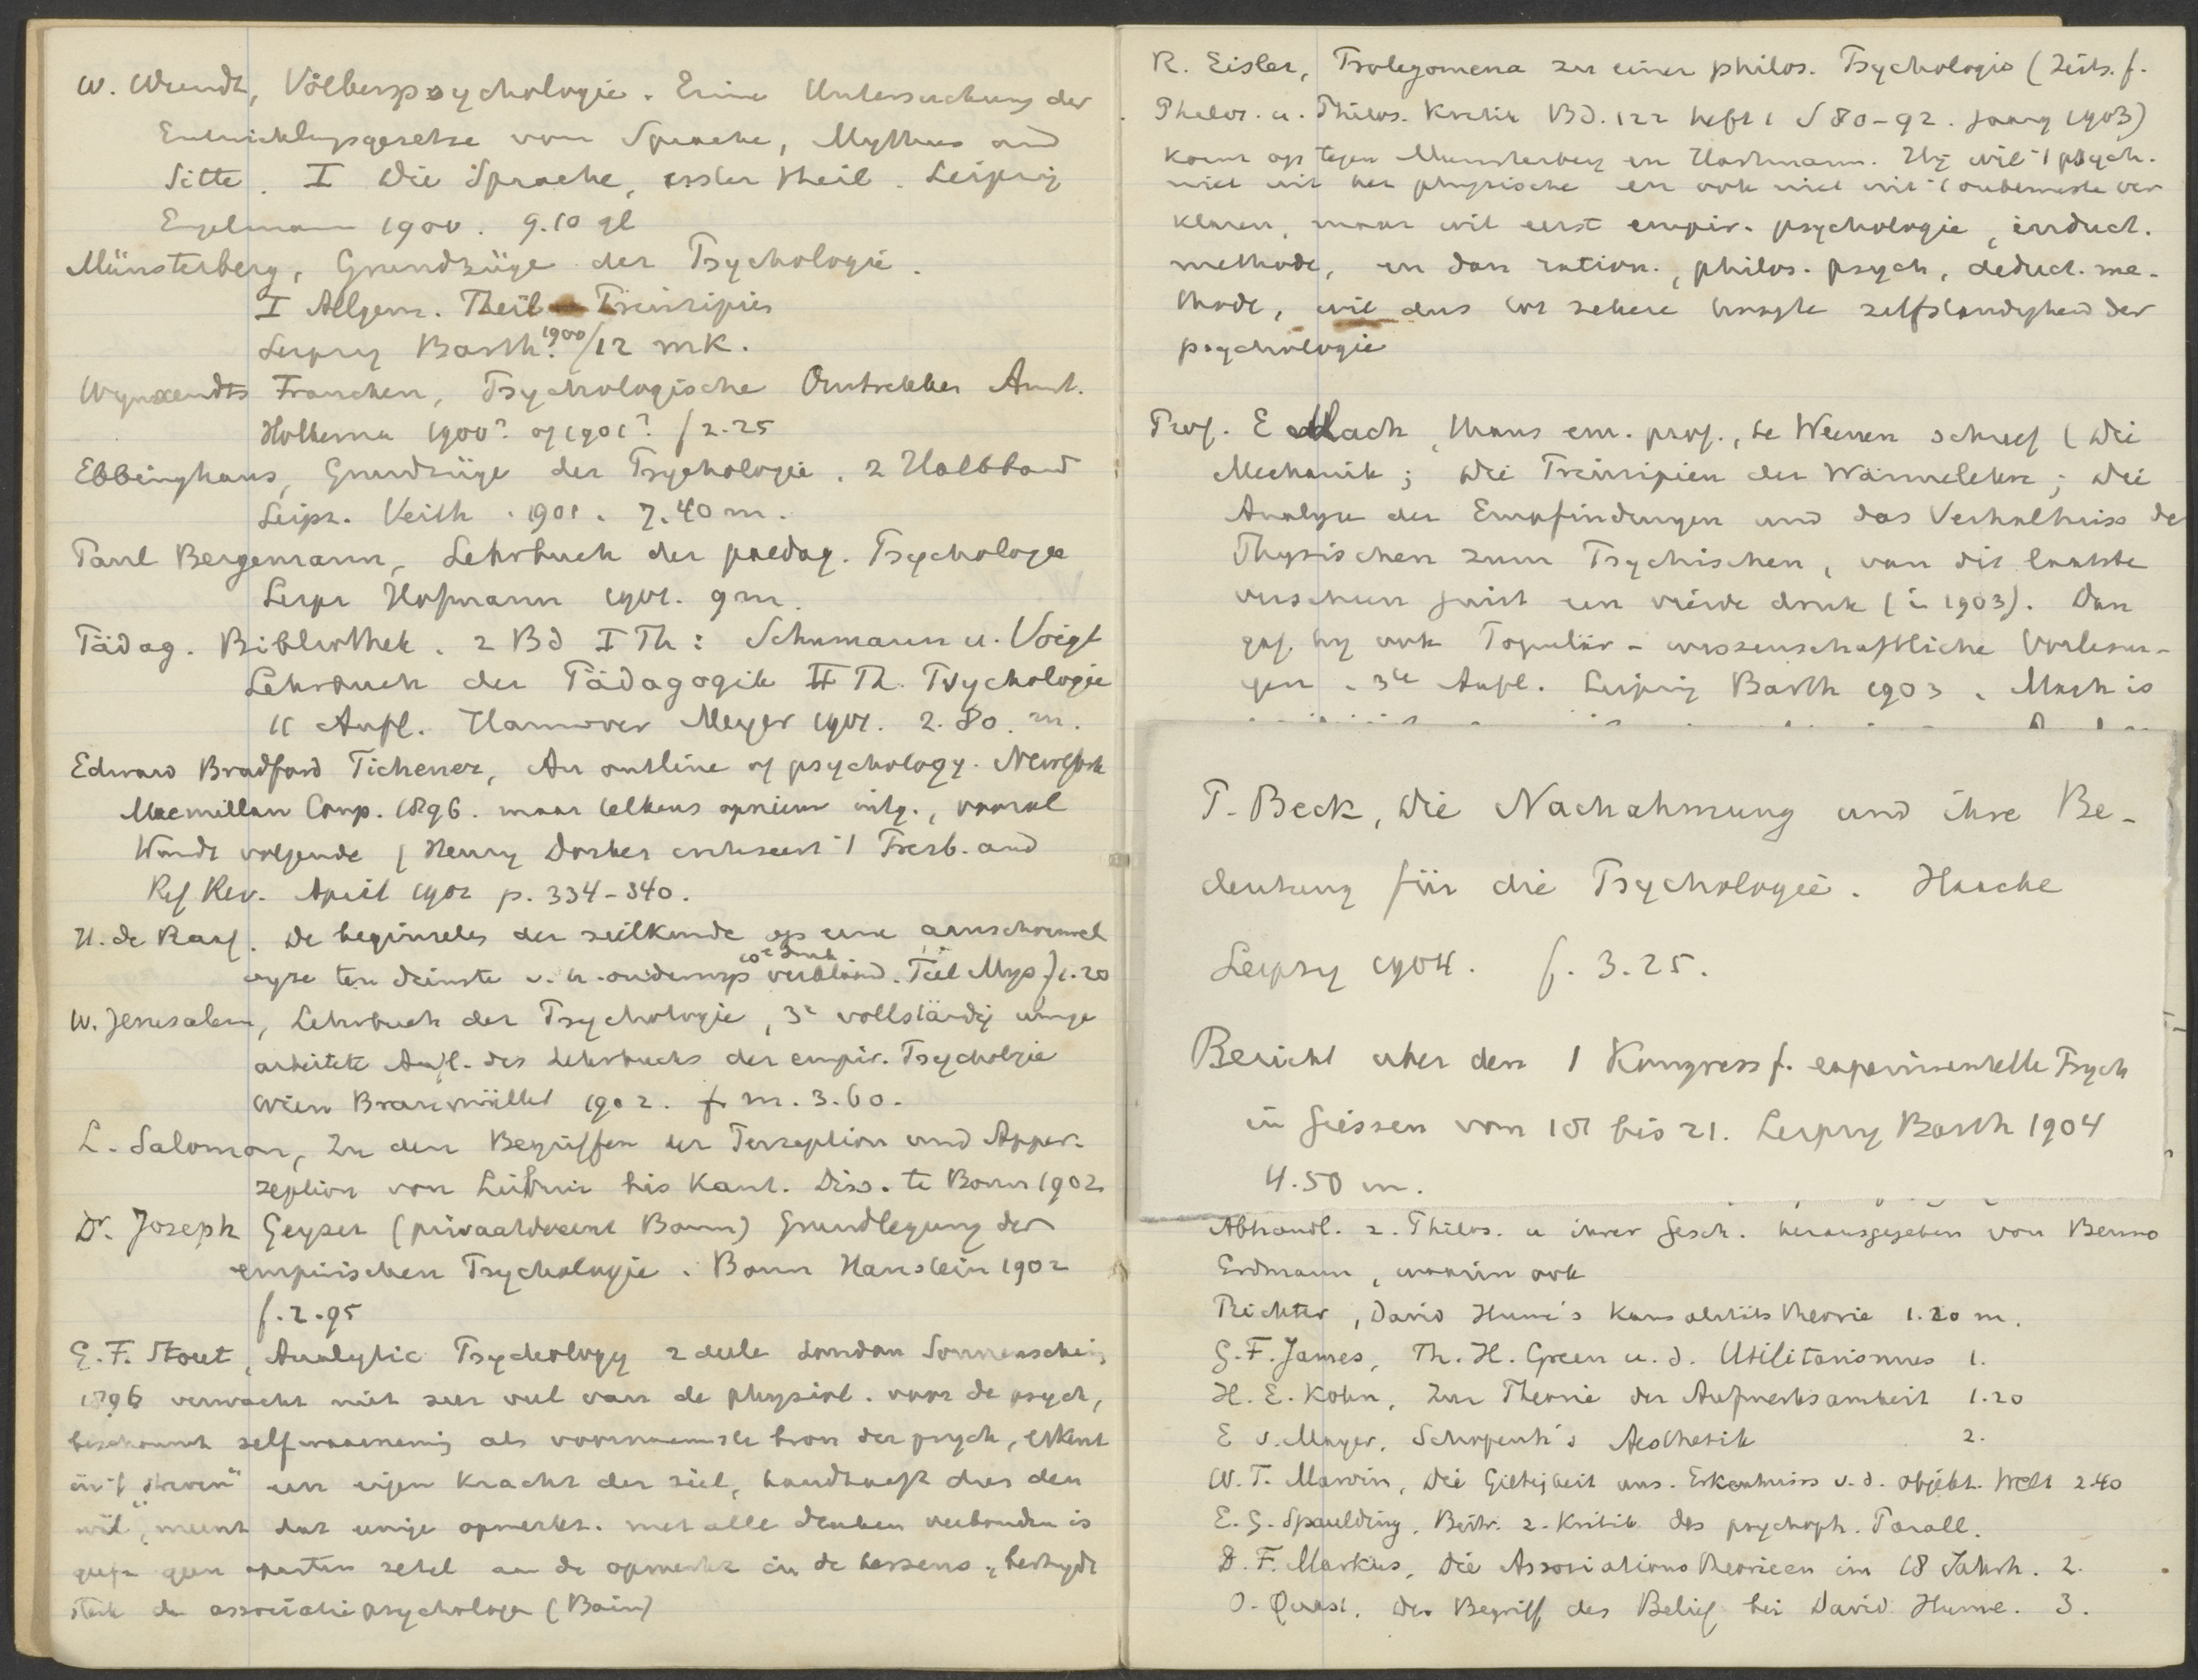 W. Wundt, Völkerpsychologie. Eine Untersuchung der
Entwicklungsgesetze von Sprache, Mythus und
Sitte. I Die Sprache, erster Theil. Leipzig
Engelmann 1900. 9.10 gl
Münsterberg, Grundzüge der Psychologie.
I Allgem. Theil Principien
Leipzig Barth. 1900/12 mK.
Wynaendts Francken, Psychologische Omtrekken Amst.
Holkema 1900? of 1901? f 2.25
Ebbinghaus, Grundzüge der Psychologie. 2 Halbband
Leipz. Veith. 1901. 7.40 m.
Paul Bergemann, Lehrbuch der paedag. Psychologie
Leipz Hofmann 1901. 9 m.
Pädag. Bibliothek. 2 Bd I Th: Schumann u. Voigt
Lehrbuch der Pädagogik II Th. Psychologie
11 Aufl. Hannover Meyer 1901. 2.80. m.
Edward Bradford Tichener, An outline of psychology. New York
Macmillan Comp. 1896. maar telkens opnieuw uitg., vooral
Wundt volgende (Henry Dosker critiseert 't Presb. and
Ref Rev. April 1902 p. 334-340.
H. de Raaf. De beginselen der zielkunde op eene aanschouwel
wyze ten dienste v. h. onderwys verklaard. 10e druk Tiel Mys. f 1.20
W. Jerusalem, Lehrbuch der Psychologie, 3e vollständig umge
arbeitete Aufl. des Lehrbuchs der empir. Psychologie
Wien Braumüller 1902. m. 3.60.
L. Salomon, Zu den Begriffen der Perzeption und Apper-
zeption von Leibniz bis Kant. Diss. te Bonn 1902
Dr. Joseph Geyser (privaatdocent Bonn) Grundlegung der
empirischen Psychologie. Bonn Hanstein 1902
f. 2.95
G. F. Stout, Analytic Psychology 2 deele London Sonnenschein
1896 verwacht niet zeer veel van de physiol. voor de psych,
beschouwt zelfwaarneming als voornaamste bron der psych, erkent
in 't "streven" een eigen kracht der ziel, handhaaft dus den
wil, meent dat enige opmerkz. met alle denken verbonden is
geeft geen aparten zetel aan de opmerkz in de hersens, bestrydt
sterk de associatiepsychologen (Bain)
R. Eisler, Prolegomena zu einer philos. Psychologie (Zeits. f.
Philos. u. Philos. Kritik BD. 122 heft 1 S 80-92. Jaarg 1903)
komt op tegen Munsterberg en Hartmann. Hy wil 't psych.
niet uit het physische en ook niet uit 't onbewuste ver
klaren, maar wil eerst empir. psychologie, induct.
methode, en dan ration., philos. psych, deduct. me-
thode, wil dus tot zekere hoogte zelfstandigheid der
psychologie
Prof. E Mach, thans em. prof., te Weenen schreef (Die
Mechanik; Die Principien der Wärmelehre; Die
Analyse der Empfindungen und das Verhältniss des
Physischen zum Psychischen, van dit laatste
verscheen juist een vierde druk (in 1903). Dan
gaf hy ook Populär-wissenschaftliche Vorlesun-
gen. 3te Aufl. Leipzig Barth 1903. Mach is
P. Beck, Die Nachahmung und ihre Be-
deutung für die Psychologie. Haacke
Leipzig 1904. f. 3.25.
Bericht uber den 1 Kongress f. experimentelle Psych
in Giessen vom 18 bis 21. Leipzig Barth 1904
4.50 m.
Abhandl. z. Philos. u ihrer Gesch. herausgegeben von Benno
Erdmann, waarin ook
Richter, David Hume's Kausalitätstheorie 1.20 m.
G. F. James, Th. H. Green u. d. Utilitarismus 1.
H. E. Kohn, Zur Theorie der Aufmerksamkeit 1.20
E v. Mayer, Schopenh's Aesthetik 2.
W. T. Marvin, Die Giltigkeit uns. Erkentniss v. d. objekt. Welt 2.40
E. G. Spaulding, Beitr. z. Kritik des psychoph. Parall.
D. F. Markus, Die Associationstheorieen im 18 Jahrh. 2.
O. Quast, Der Begriff des Belief bei David Hume. 3.